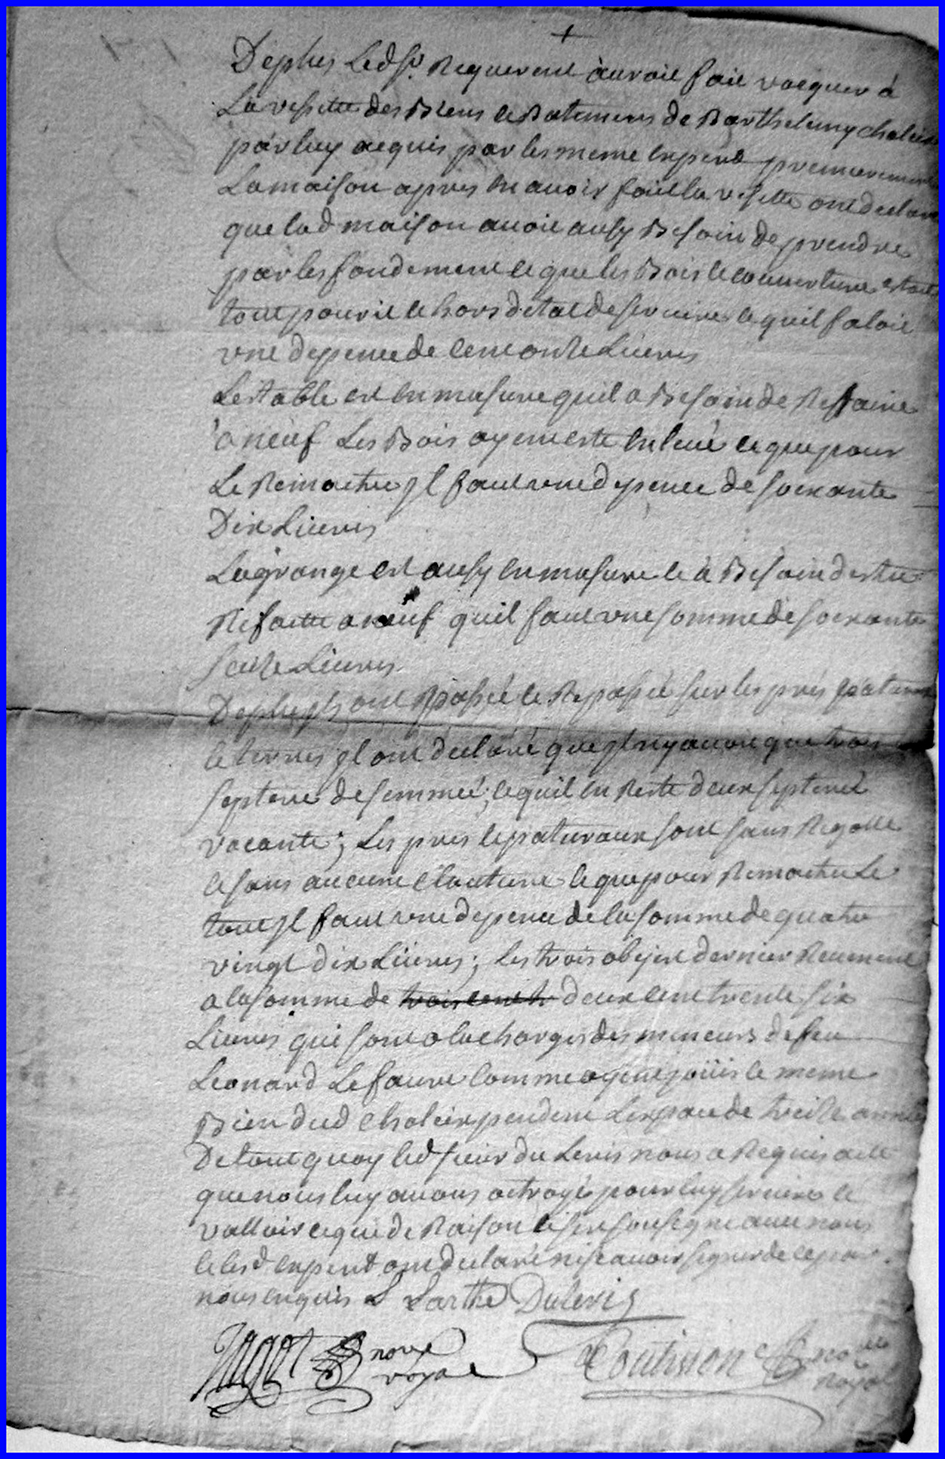 +
Deplus Led sr. Requerent auroit fait vacquer a
La visitte des Biens et Batimens de Barthelemy chaleix
par luy acquis par les meme expert premierement
La maison apres en avoir fait la visitte ont declare
que lad maison avoit ausy Besoin de prendre
par les fondement et que les Bois et couverture estoit
tout pourit et hors detat de servire et quil faloit
vne depence de cent onze Livres
Lestable est en masure quil a Besoin de Reffaire
a neuf Les Bois ayent este enlevé et que pour
Le Remaitre Il faut vne depence de soixante
Dix Livres
Lagrange est ausy en masure et a Besoin destre
Refaitte a neuf quil faut vne somme de soixante
seize Livres
Deplus Ils ont passé et Repassé sur les prés paturaux
et terres Il ont declaré que Il ny avoit que trois
septeree de semmée, et quil en Reste deux septeree
vacante ; Les pres et paturaux sont sans Rigolle
et sans aucune clauture et que pour Remaitre Le
tout Il faut vne depence de la somme de quatre
vingt dix Livres ; Les trois objet dernier Reviennent
a la somme de trois cent deux cent trente six
Livres qui sont a la charges des mineurs de feu
Leonard Lefaure comme ayent joüis le meme
Bien dud Chaleix pendent Lespace de treize année
De tout quoy led sieur du Leris nous a Requis acte
que nous luy avons octroyé pour luy servire et
valloir ce que de Raison et sest sousigne avec nous
et lesd expert ont declaré ne scavoir signer de ce par
nous enquis L Larthe Duleris
Jagot nore royal
Coutisson nore royal